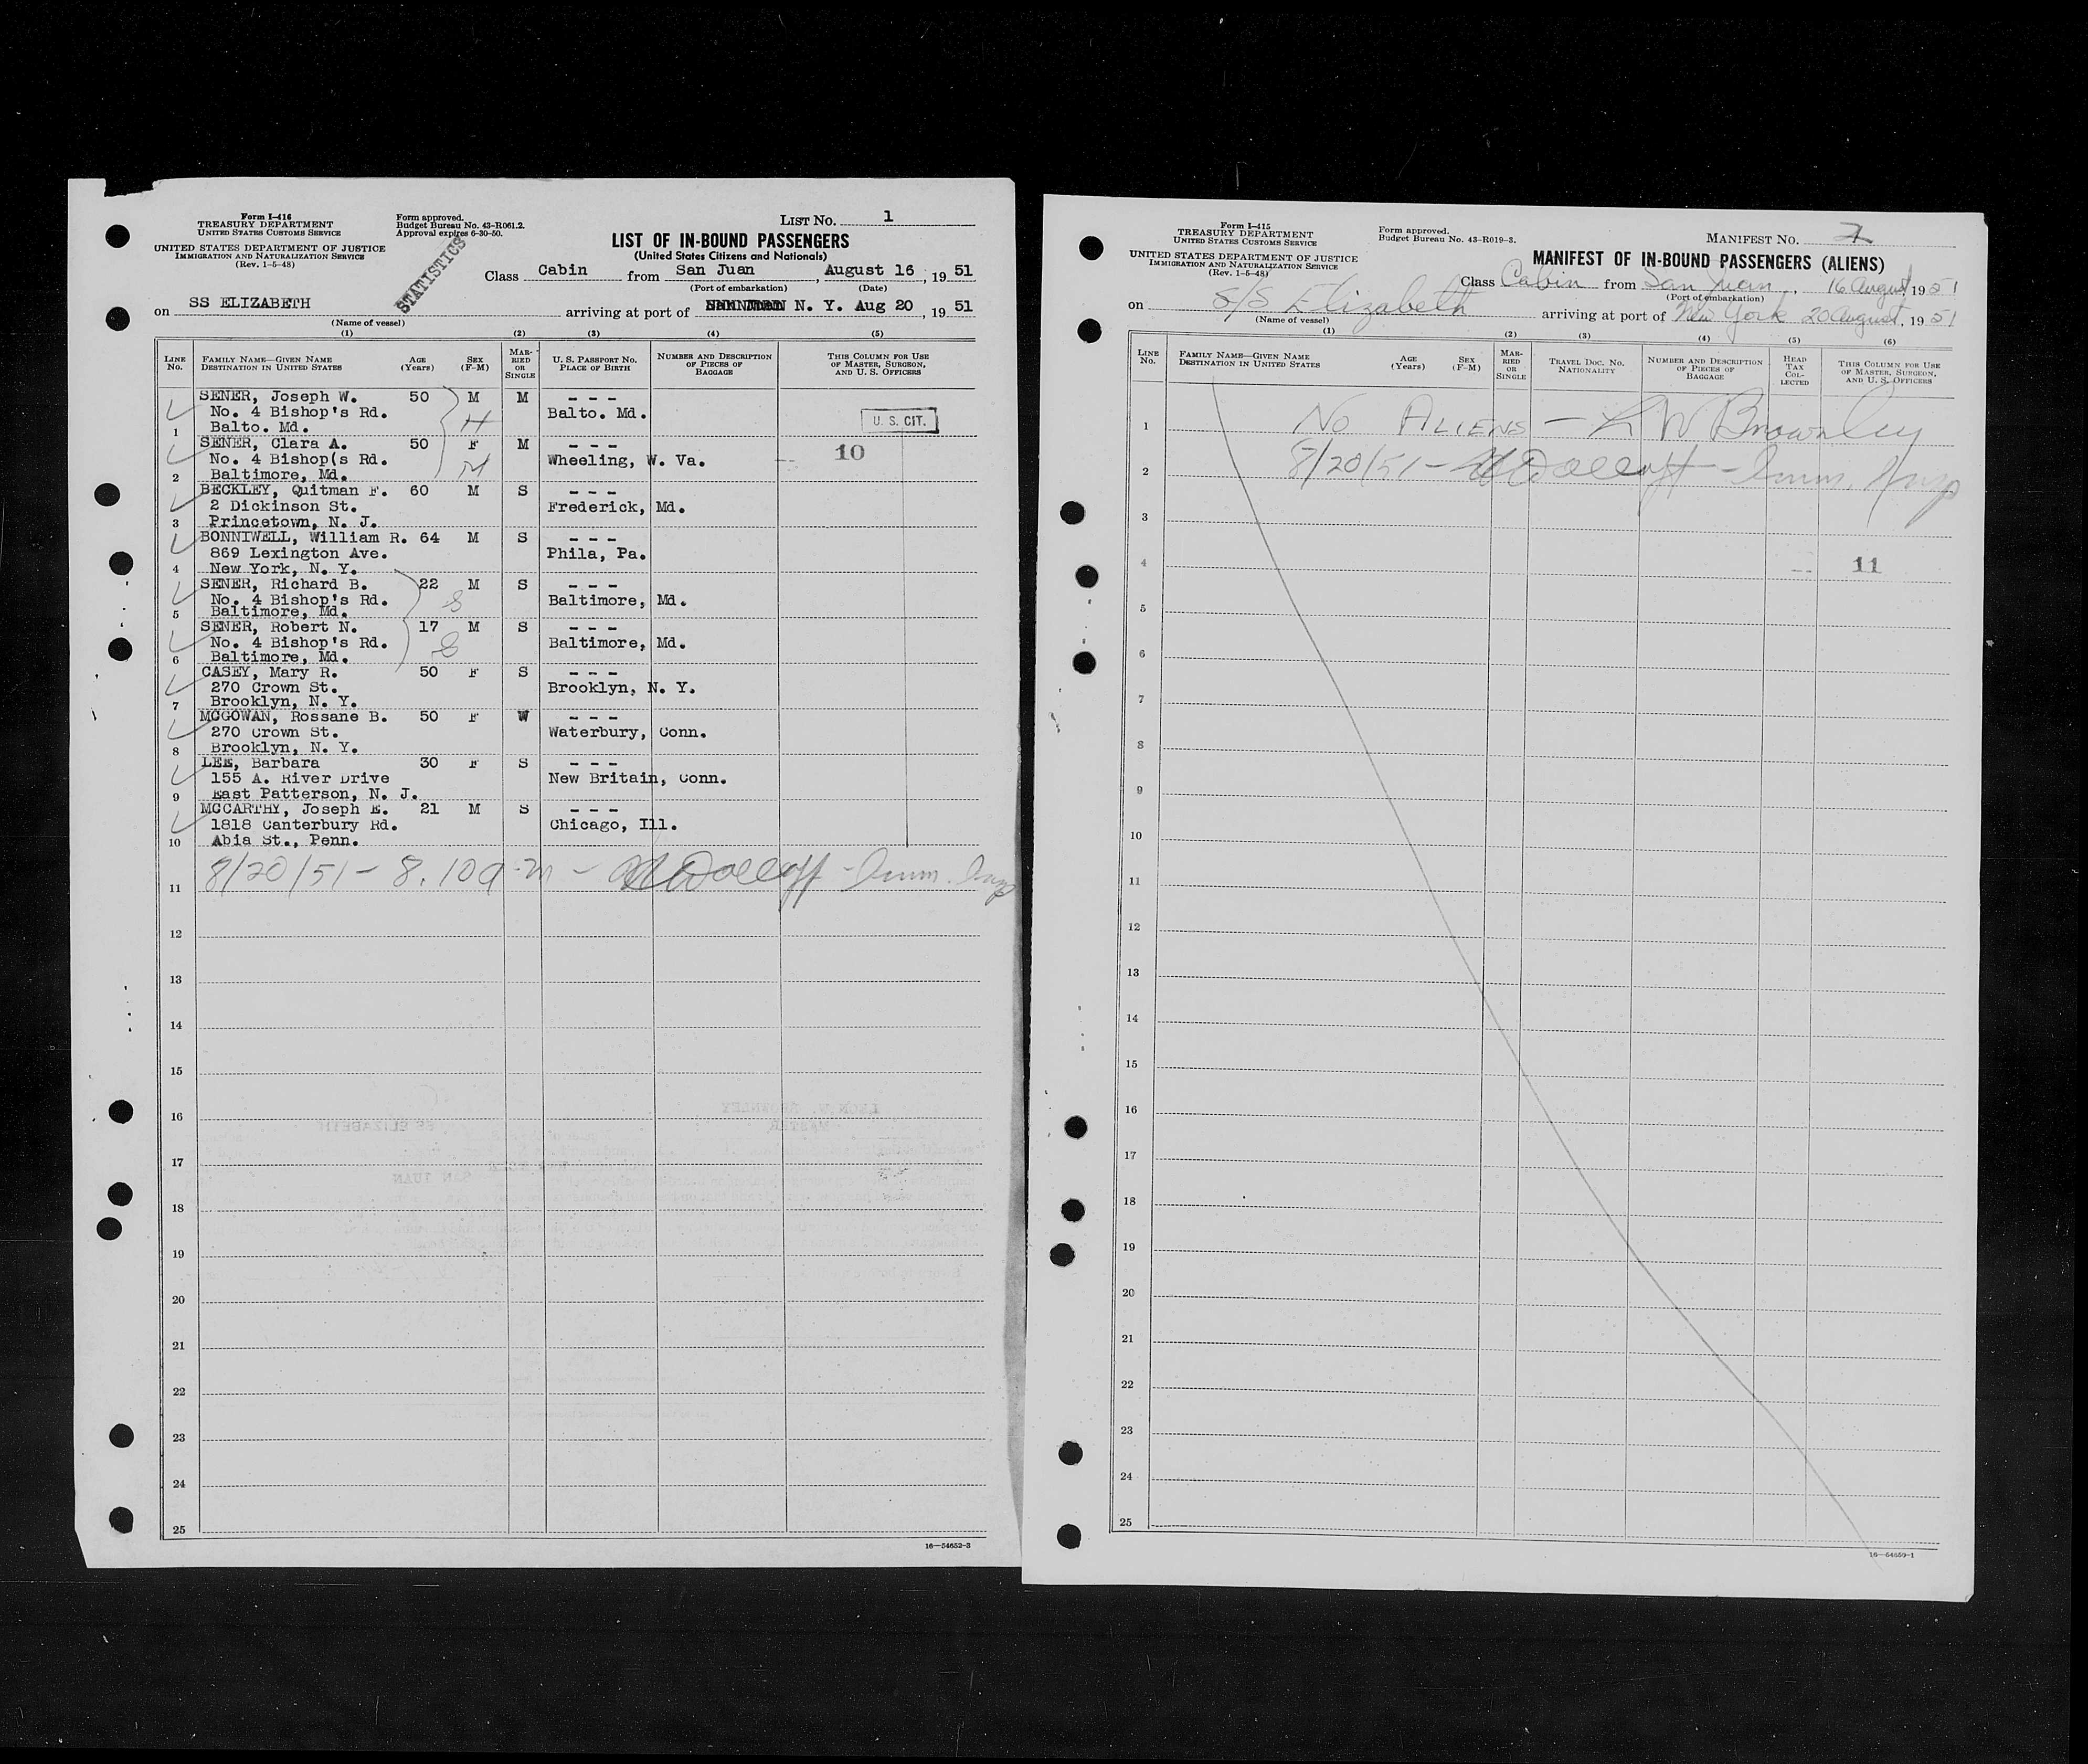 Form I-416
TREASURY DEPARTMENT
UNITED STATES CUSTOMS SERVICE
UNITED STATES DEPARTMENT OF JUSTICE
IMMIGRATION AND NATURALIZATION SERVICE
(Rev. 1-5-48)
Form approved.
Budget Bureau No. 43-R061.2.
Approval expires 6-30-50.
STATISTICS
LIST NO. 1
LIST OF IN-BOUND PASSENGERS
(United States Citizens and Nationals)
Class Cabin from San Juan, August 16, 19 51
(Port of embarkation) (Date)
on SS ELIZABETH arriving at port of N. Y. Aug 20, 19 51
(Name of vessel)
(1) (2) (3) (4) (5)
LINE NO. FAMILY NAME—GIVEN NAME DESTINATION IN UNITED STATES AGE (Years) SEX (F-M) MARRIED OR SINGLE U. S. PASSPORT NO. PLACE OF BIRTH NUMBER AND DESCRIPTION OF PIECES OF BAGGAGE THIS COLUMN FOR USE OF MASTER, SURGEON, AND U. S. OFFICERS
SENER, Joseph W. 50 M M - - -
No. 4 Bishop's Rd. H Balto. Md. U. S. CIT.
1 Balto. Md.
SENER, Clara A. 50 F M - - - 10
No. 4 Bishop(s Rd. Wheeling, W. Va.
2 Baltimore, Md.
BECKLEY, Quitman F. 60 M S - - -
2 Dickinson St. Frederick, Md.
3 Princetown, N. J.
BONNIWELL, William R. 64 M S - - -
869 Lexington Ave. Phila, Pa.
4 New York, N. Y.
SENER, Richard B. 22 M S - - -
No. 4 Bishop's Rd. S Baltimore, Md.
5 Baltimore, Md.
SENER, Robert N. 17 M S - - -
No. 4 Bishop's Rd. S Baltimore, Md.
6 Baltimore, Md.
CASEY, Mary R. 50 F S - - -
270 Crown St. Brooklyn, N. Y.
7 Brooklyn, N. Y.
MCGOWAN, Rossane B. 50 F W - - -
270 Crown St. Waterbury, Conn.
8 Brooklyn, N. Y.
LEE, Barbara 30 F S - - -
155 A. River Drive New Britain, Conn.
9 East Patterson, N. J.
MCCARTHY, Joseph E. 21 M S - - -
1818 Canterbury Rd. Chicago, Ill.
10 Abia St., Penn.
11 8/20/51 - 8.10 a.m - Imm. Insp
12
13
14
15
16
17
18
19
20
21
22
23
24
25
16—54652-3
Form I-415
TREASURY DEPARTMENT
UNITED STATES CUSTOMS SERVICE
UNITED STATES DEPARTMENT OF JUSTICE
IMMIGRATION AND NATURALIZATION SERVICE
(Rev. 1-5-48)
Form approved.
Budget Bureau No. 43-R019-3.
MANIFEST NO.
MANIFEST OF IN-BOUND PASSENGERS (ALIENS)
Class Cabin from San Juan, 16 August, 19 51
(Port of embarkation)
on S/S Elizabeth arriving at port of New York 20 August, 19 51
(Name of vessel)
(1) (2) (3) (4) (5) (6)
LINE NO. FAMILY NAME—GIVEN NAME DESTINATION IN UNITED STATES AGE (Years) SEX (F-M) MARRIED OR SINGLE TRAVEL DOC. NO. NATIONALITY NUMBER AND DESCRIPTION OF PIECES OF BAGGAGE HEAD TAX COLLECTED THIS COLUMN FOR USE OF MASTER, SURGEON, AND U. S. OFFICERS
1 No ALIENS - L W Brownley
2 8/20/51 - Imm. Insp
3
4 11
5
6
7
8
9
10
11
12
13
14
15
16
17
18
19
20
21
22
23
24
25
16—54650-1